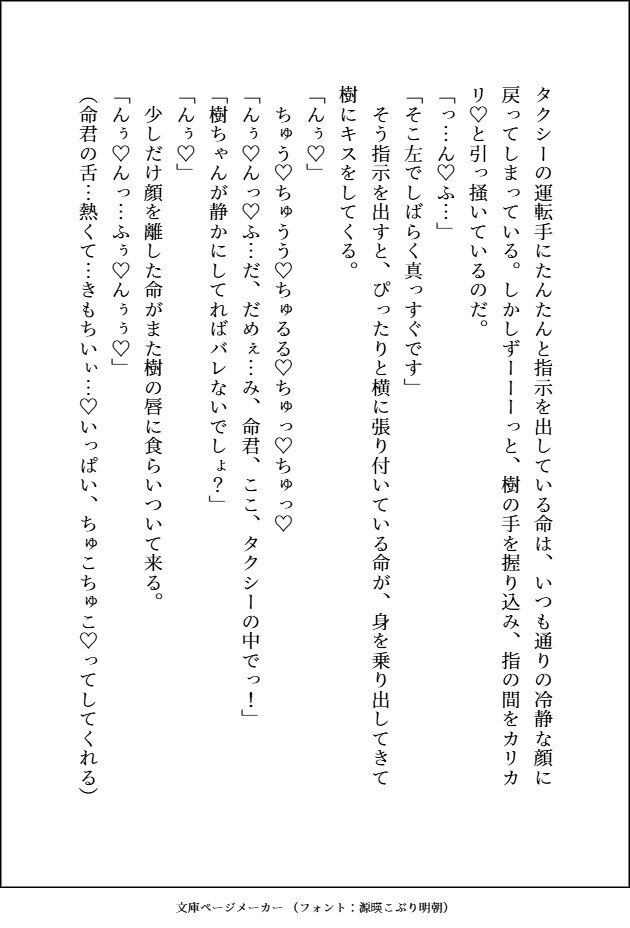 タクシーの運転手にたんたんと指示を出している命は、いつも通りの冷静な顔に
戻ってしまっている。しかしずーーーっと、樹の手を握り込み、指の間をカリカ
リ♡と引っ掻いているのだ。
「っ…ん♡ふ…」
「そこ左でしばらく真っすぐです」
そう指示を出すと、ぴったりと横に張り付いている命が、身を乗り出してきて
樹にキスをしてくる。
「んぅ♡」
ちゅう♡ちゅうう♡ちゅるる♡ちゅっ♡ちゅっ♡
「んぅ♡んっ♡ふ…だ、だめぇ…み、命君、ここ、タクシーの中でっ！」
「樹ちゃんが静かにしてればバレないでしょ？」
「んぅ♡」
少しだけ顔を離した命がまた樹の唇に食らいついて来る。
「んぅ♡んっ…ふぅ♡んぅぅ♡」
（命君の舌…熱くて…きもちいぃ…♡いっぱい、ちゅこちゅこ♡ってしてくれる）
文庫ページメーカー（フォント：源暎こぶり明朝）